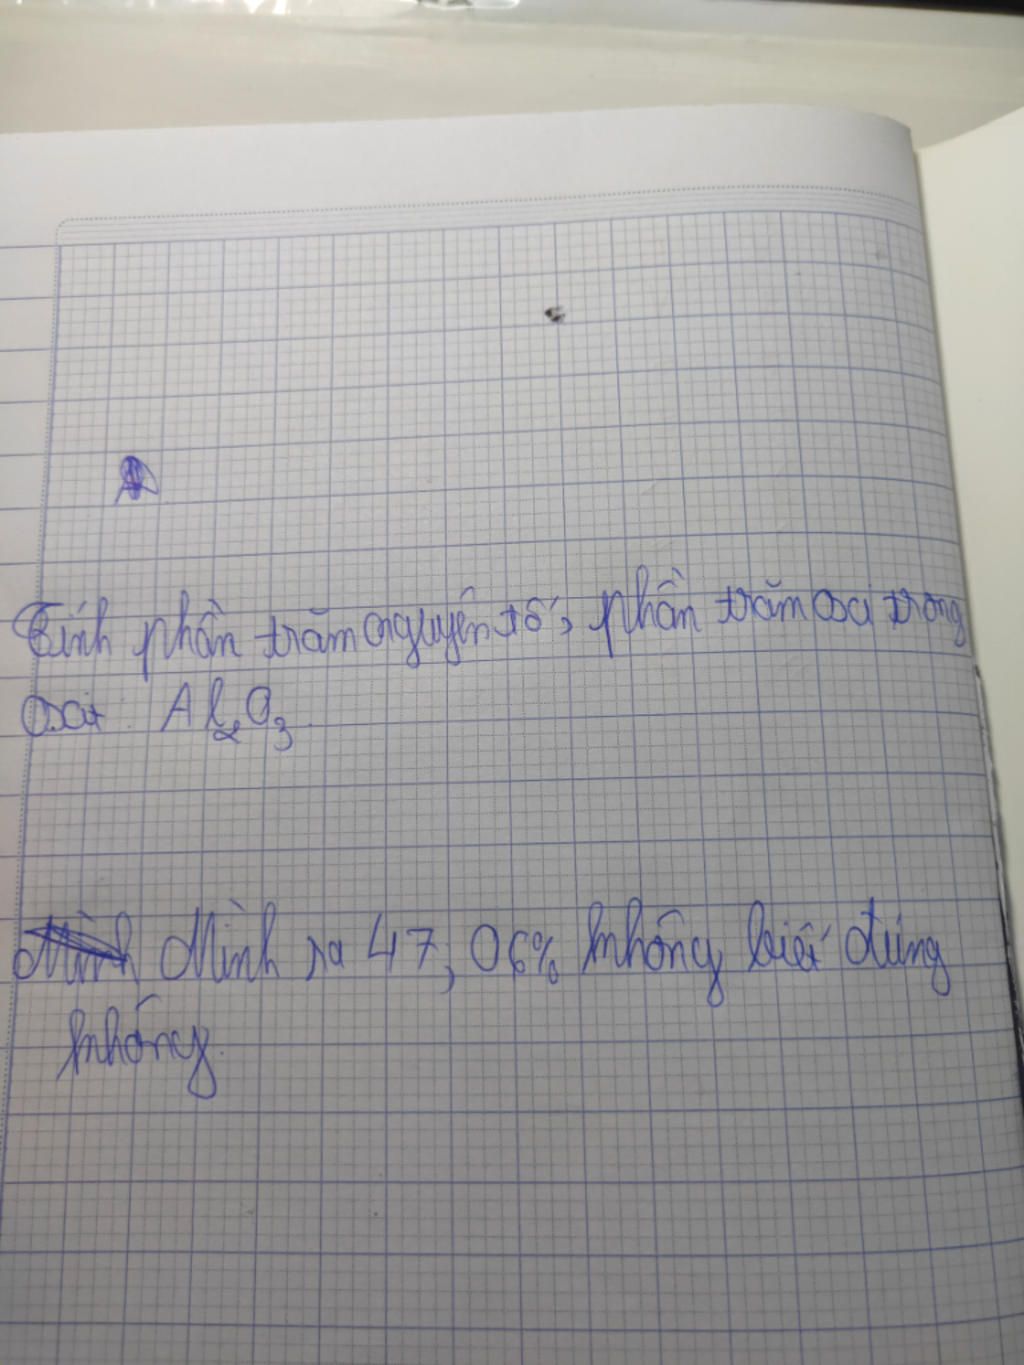 Tính phần trăm nguyên tố, phần trăm oxi trong
oxit: Al2O3.
Mình ra 47,06% không biết đúng
không.